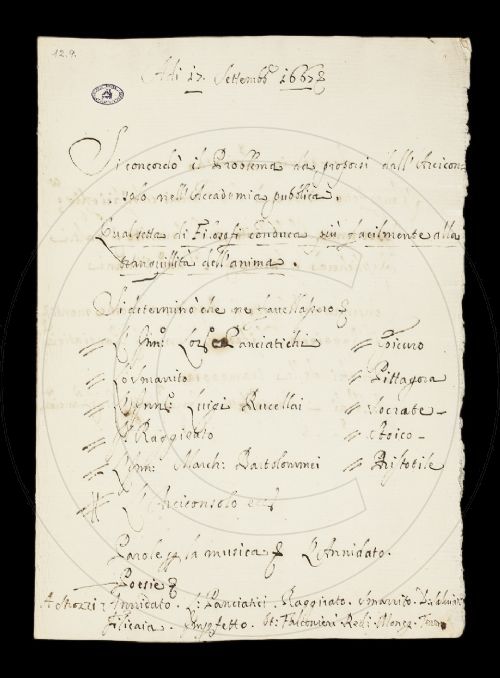 12.9.
Adi 17 Settemb.e 1667
Si concordò il Problema da proporsi dall'Arcicon-
solo nell'Accademia pubblica.
Qual setta di Filosofi conduca più facilmente alla
tranquillità dell'anima.
Si determinò che ne favellassero
Panciatichi Epicuro
Smarrito Pittagora
Luigi Rucellai Socrate
Il Raggirato Stoico
March: Bartolommei Aristotile
L'Arciconsolo
Parole per la musica L'Annidato.
Poesie
Annidato. Panciatici. Raggirato. Smarrito.
Filicaia. Imperfetto. Falconieri Redi.